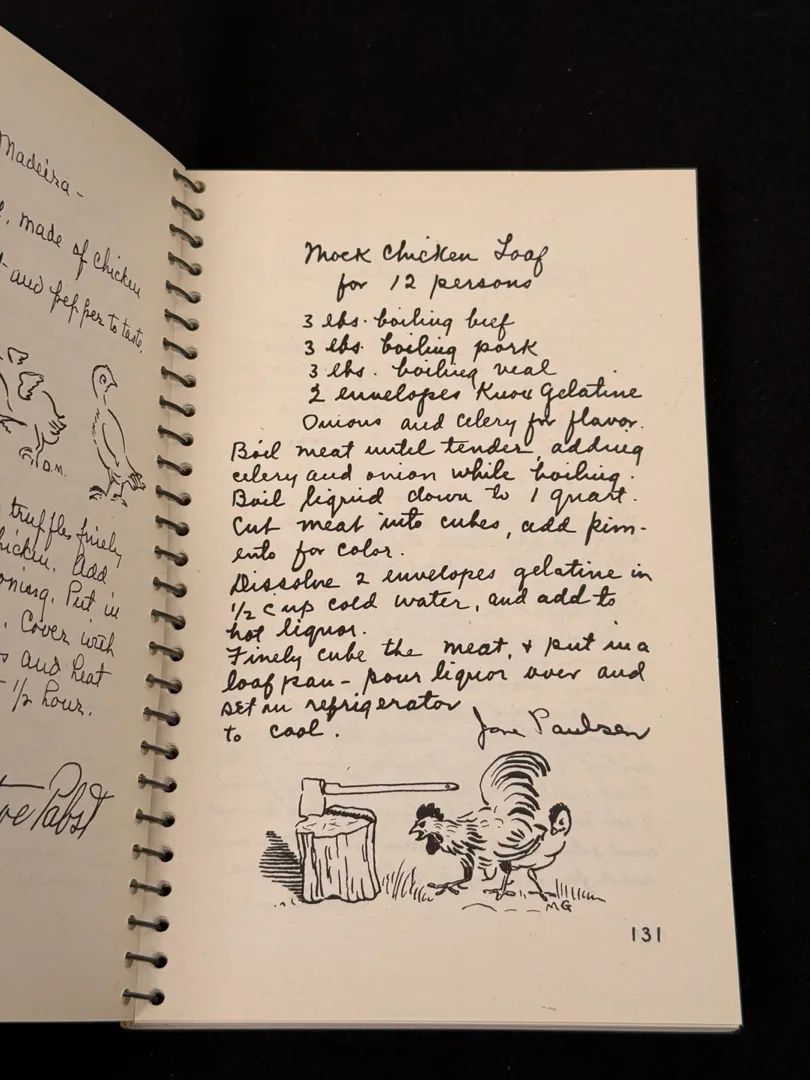 Madeira -
made of chicken
and pepper to taste.
D.M.
truffles finely
Add
Put in
Cover with
and heat
1/2 hour.
Pabst
Mock Chicken Loaf
for 12 persons
3 lbs. boiling beef
3 lbs. boiling pork
3 lbs. boiling veal
2 envelopes Knox Gelatine
Onions and celery for flavor.
Boil meat until tender, adding
celery and onion while boiling.
Boil liquid down to 1 quart.
Cut meat into cubes, add pim-
ento for color.
Dissolve 2 envelopes gelatine in
1/2 cup cold water, and add to
hot liquor.
Finely cube the meat, & put in a
loaf pan - pour liquor over and
set in refrigerator
to cool.
Jane Paulsen
MG
131